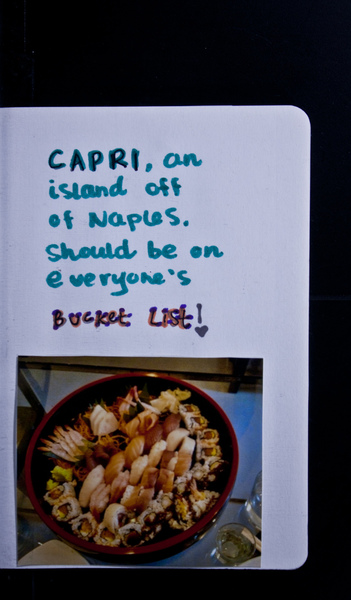 CAPRI, an
island off
of Naples.
Should be on
everyone's
Bucket List!